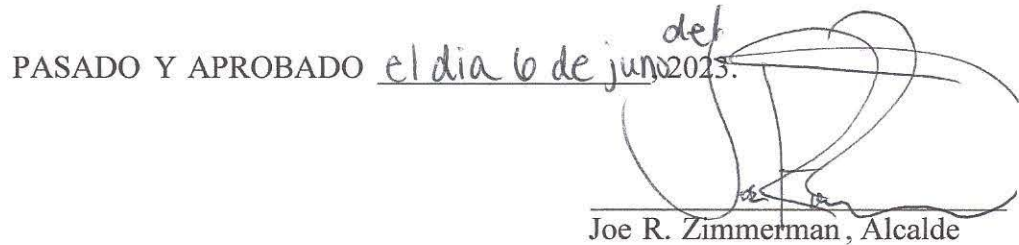 PASADO Y APROBADO el dia 6 de juno del 2023.
Joe R. Zimmerman, Alcalde